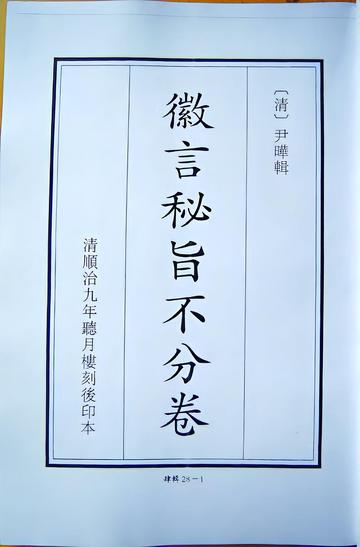 〔清〕尹曄輯
徽言秘旨不分卷
清順治九年聽月樓刻後印本
肆輯 28－1